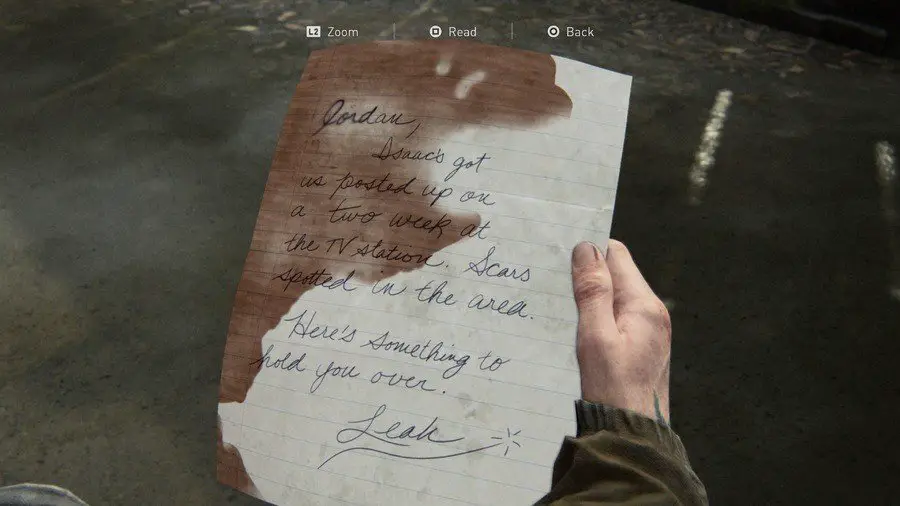 L2 Zoom
Read
Back
Jordan,
Isaac's got
us posted up on
a two week at
the TV station. Scars
spotted in the area.
Here's something to
hold you over.
Leah